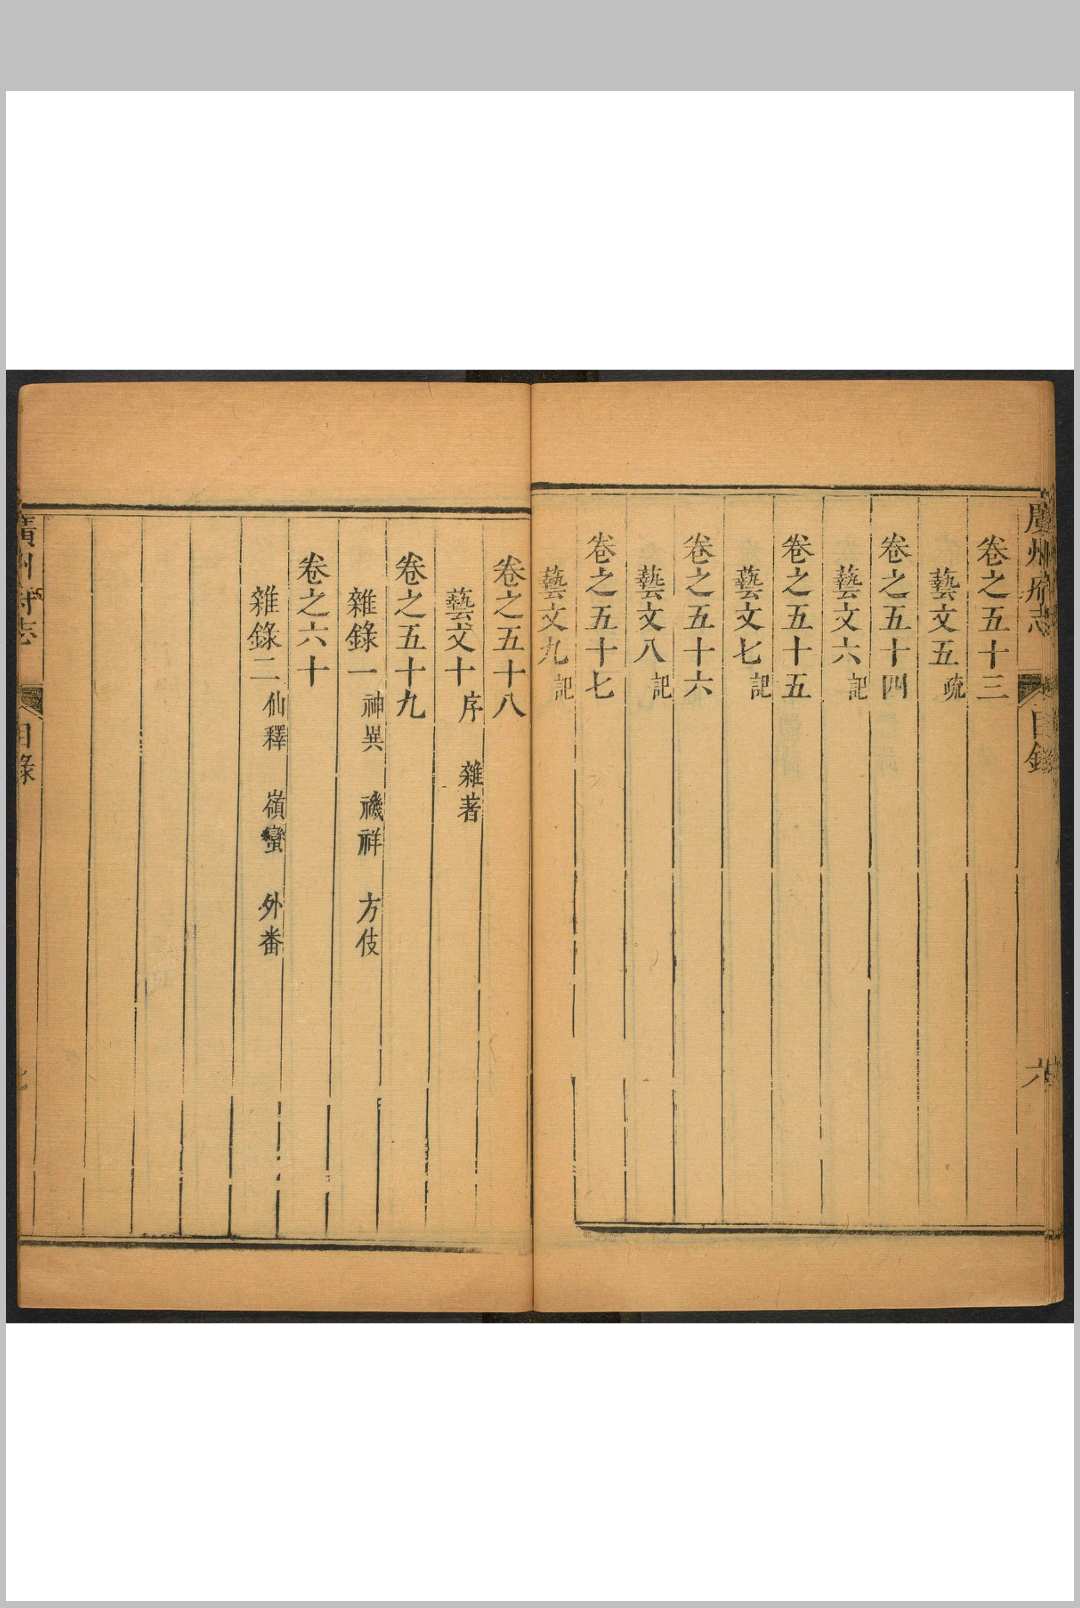 廣州府志 目錄 六
卷之五十三
藝文五 疏
卷之五十四
藝文六 記
卷之五十五
藝文七 記
卷之五十六
藝文八 記
卷之五十七
藝文九 記
卷之五十八
藝文十 序 雜著
卷之五十九
雜錄一 神異 禨祥 方伎
卷之六十
雜錄二 仙釋 嶺蠻 外番
廣州府志 目錄